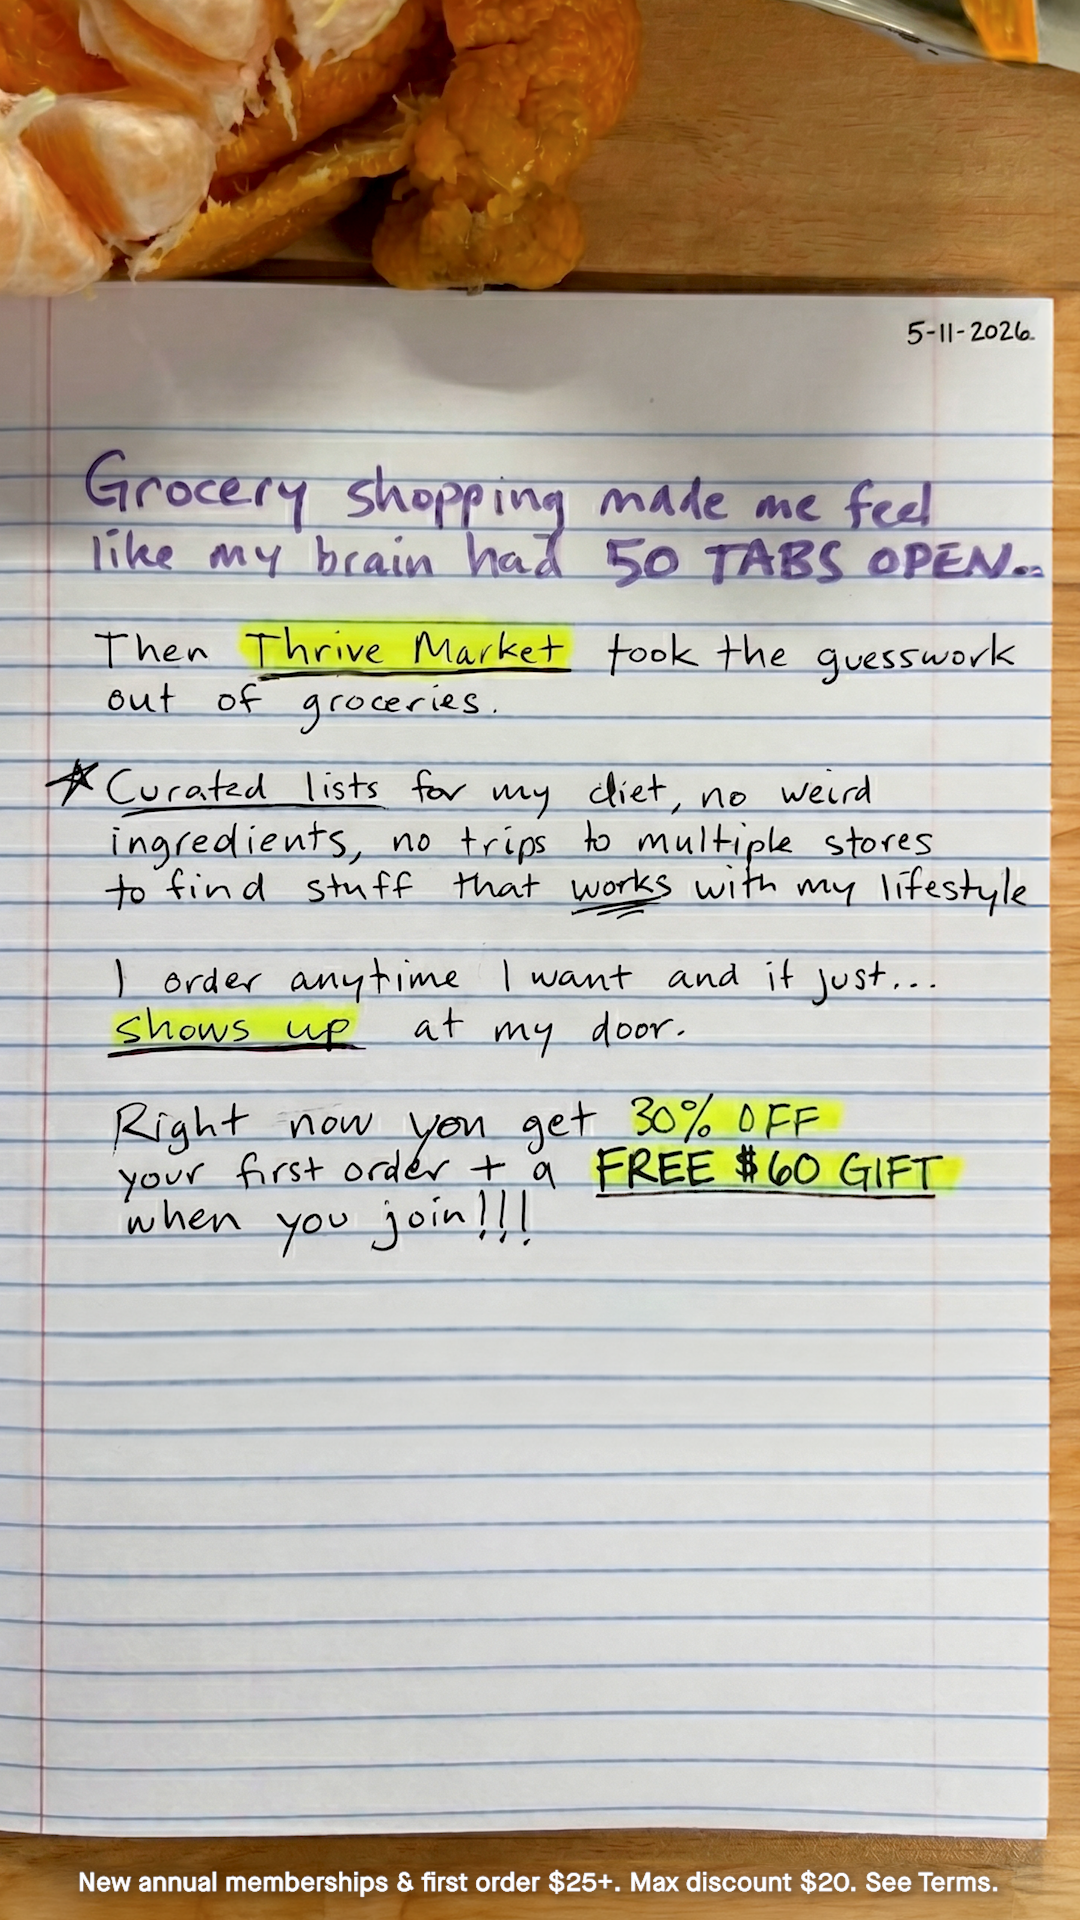 5-11-2026
Grocery shopping made me feel
like my brain had 50 TABS OPEN...
Then Thrive Market took the guesswork
out of groceries.
Curated lists for my diet, no weird
ingredients, no trips to multiple stores
to find stuff that works with my lifestyle
I order anytime I want and it just...
shows up at my door.
Right now you get 30% OFF
your first order + a FREE $60 GIFT
when you join!!!
New annual memberships & first order $25+. Max discount $20. See Terms.